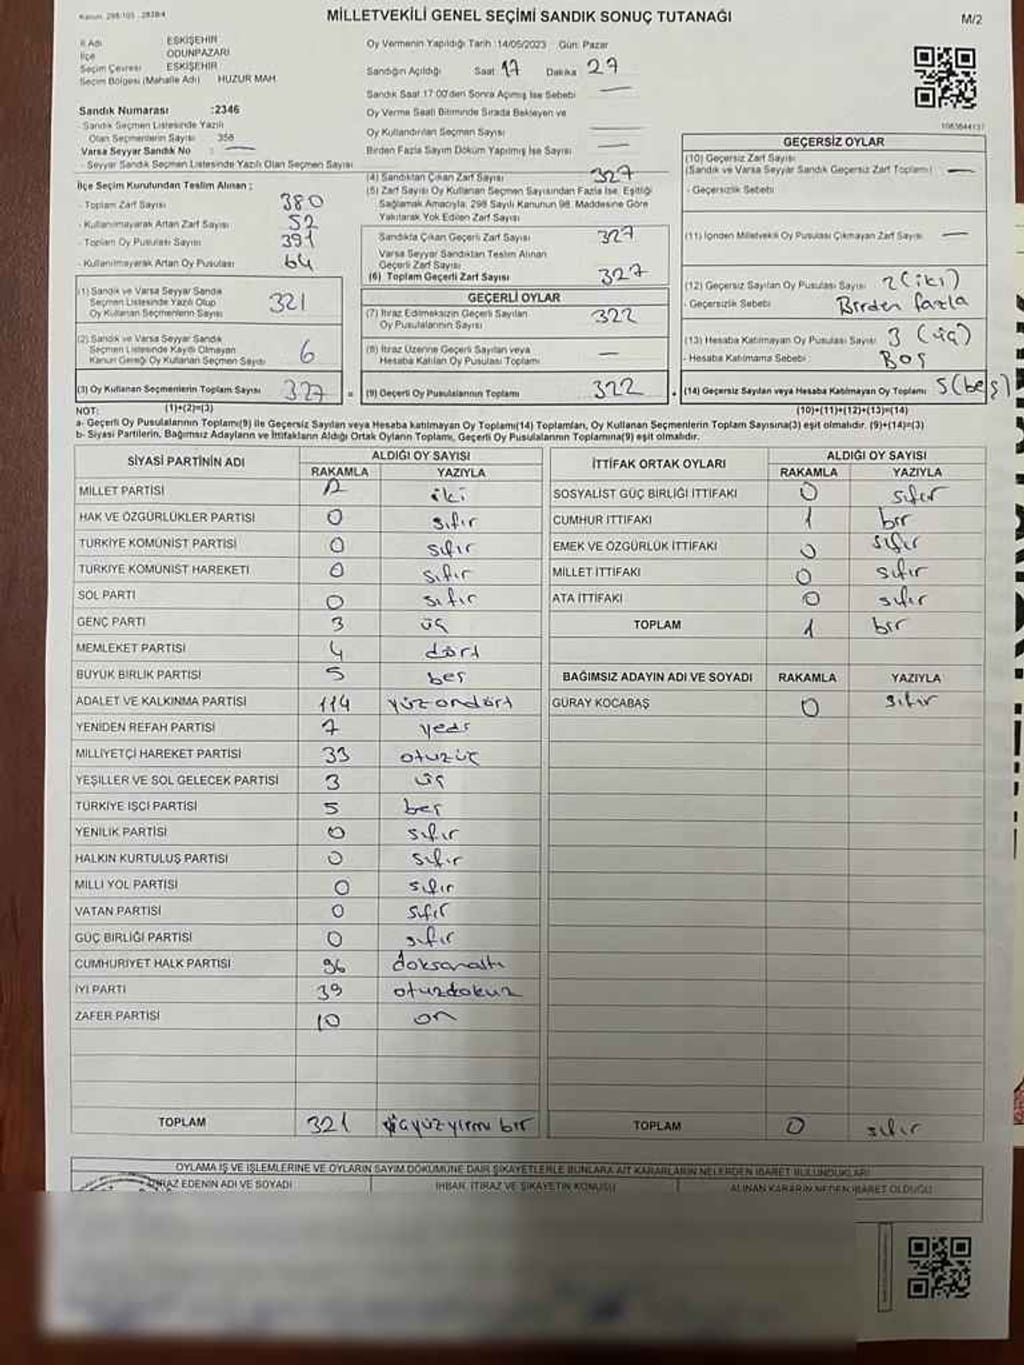 MİLLETVEKİLİ GENEL SEÇİMİ SANDIK SONUÇ TUTANAĞI
M/2
İl Adı ESKİŞEHİR
İlçe ODUNPAZARI
Seçim Çevresi ESKİŞEHİR
Seçim Bölgesi (Mahalle Adı) HUZUR MAH.
Sandık Numarası :2346
- Sandık Seçmen Listesinde Yazılı
Olan Seçmenlerin Sayısı 358
Varsa Seyyar Sandık No : —
- Seyyar Sandık Seçmen Listesinde Yazılı Olan Seçmen Sayısı
Oy Vermenin Yapıldığı Tarih :14/05/2023 Gün: Pazar
Sandığın Açıldığı Saat 17 Dakika 27
Sandık Saat 17:00'den Sonra Açımış İse Sebebi —
Oy Verme Saati Bitiminde Sırada Bekleyen ve
Oy Kullandırılan Seçmen Sayısı —
Birden Fazla Sayım Döküm Yapılmış İse Sayısı —
İlçe Seçim Kurulundan Teslim Alınan ;
- Toplam Zarf Sayısı 380
- Kullanılmayarak Artan Zarf Sayısı 52
- Toplam Oy Pusulası Sayısı 391
- Kullanılmayarak Artan Oy Pusulası 64
(1) Sandık ve Varsa Seyyar Sandık
Seçmen Listesinde Yazılı Olup
Oy Kullanan Seçmenlerin Sayısı 321
(2) Sandık ve Varsa Seyyar Sandık
Seçmen Listesinde Kaydı Olmayan
Kanun Gereği Oy Kullanan Seçmen Sayısı 6
(3) Oy Kullanan Seçmenlerin Toplam Sayısı 327 =
(1)+(2)=(3)
(4) Sandıktan Çıkan Zarf Sayısı 327
(5) Zarf Sayısı Oy Kullanan Seçmen Sayısından Fazla İse, Eşitliği
Sağlamak Amacıyla; 298 Sayılı Kanunun 98. Maddesine Göre
Yakılarak Yok Edilen Zarf Sayısı
Sandıkta Çıkan Geçerli Zarf Sayısı 327
Varsa Seyyar Sandıktan Teslim Alınan
Geçerli Zarf Sayısı
(6) Toplam Geçerli Zarf Sayısı 327
GEÇERLİ OYLAR
(7) İtiraz Edilmeksizin Geçerli Sayılan
Oy Pusulalarının Sayısı 322
(8) İtiraz Üzerine Geçerli Sayılan veya
Hesaba Katılan Oy Pusulası Toplamı —
(9) Geçerli Oy Pusulalarının Toplamı 322 +
GEÇERSİZ OYLAR
(10) Geçersiz Zarf Sayısı
(Sandık ve Varsa Seyyar Sandık Geçersiz Zarf Toplamı) —
- Geçersizlik Sebebi
(11) İçinden Milletvekili Oy Pusulası Çıkmayan Zarf Sayısı —
(12) Geçersiz Sayılan Oy Pusulası Sayısı 2 (iki)
- Geçersizlik Sebebi Birden fazla
(13) Hesaba Katılmayan Oy Pusulası Sayısı 3 (üç)
- Hesaba Katılmama Sebebi Boş
(14) Geçersiz Sayılan veya Hesaba Katılmayan Oy Toplamı 5 (beş)
(10)+(11)+(12)+(13)=(14)
NOT:
a- Geçerli Oy Pusulalarının Toplamı(9) ile Geçersiz Sayılan veya Hesaba katılmayan Oy Toplamı(14) Toplamları, Oy Kullanan Seçmenlerin Toplam Sayısına(3) eşit olmalıdır. (9)+(14)=(3)
b- Siyasi Partilerin, Bağımsız Adayların ve İttifakların Aldığı Ortak Oyların Toplamı, Geçerli Oy Pusulalarının Toplamına(9) eşit olmalıdır.
SİYASİ PARTİNİN ADI ALDIĞI OY SAYISI
RAKAMLA YAZIYLA
MİLLET PARTİSİ 2 iki
HAK VE ÖZGÜRLÜKLER PARTİSİ 0 sıfır
TÜRKİYE KOMÜNİST PARTİSİ 0 sıfır
TÜRKİYE KOMÜNİST HAREKETİ 0 sıfır
SOL PARTİ 0 sıfır
GENÇ PARTİ 3 üç
MEMLEKET PARTİSİ 4 dört
BÜYÜK BİRLİK PARTİSİ 5 beş
ADALET VE KALKINMA PARTİSİ 114 yüzondört
YENİDEN REFAH PARTİSİ 7 yedi
MİLLİYETÇİ HAREKET PARTİSİ 33 otuzüç
YEŞİLLER VE SOL GELECEK PARTİSİ 3 üç
TÜRKİYE İŞÇİ PARTİSİ 5 beş
YENİLİK PARTİSİ 0 sıfır
HALKIN KURTULUŞ PARTİSİ 0 sıfır
MİLLİ YOL PARTİSİ 0 sıfır
VATAN PARTİSİ 0 sıfır
GÜÇ BİRLİĞİ PARTİSİ 0 sıfır
CUMHURİYET HALK PARTİSİ 96 doksanaltı
İYİ PARTİ 39 otuzdokuz
ZAFER PARTİSİ 10 on
TOPLAM 321 üçyüzyirmi bir
İTTİFAK ORTAK OYLARI ALDIĞI OY SAYISI
RAKAMLA YAZIYLA
SOSYALİST GÜÇ BİRLİĞİ İTTİFAKI 0 sıfır
CUMHUR İTTİFAKI 1 bir
EMEK VE ÖZGÜRLÜK İTTİFAKI 0 sıfır
MİLLET İTTİFAKI 0 sıfır
ATA İTTİFAKI 0 sıfır
TOPLAM 1 bir
BAĞIMSIZ ADAYIN ADI VE SOYADI RAKAMLA YAZIYLA
GÜRAY KOCABAŞ 0 sıfır
TOPLAM 0 sıfır
OYLAMA İŞ VE İŞLEMLERİNE VE OYLARIN SAYIM DÖKÜMÜNE DAİR ŞİKAYETLERLE BUNLARA AİT KARARLARIN NELERDEN İBARET BULUNDUKLARI
İTİRAZ EDENİN ADI VE SOYADI İHBAR, İTİRAZ VE ŞİKAYETİN KONUSU ALINAN KARARIN NEDEN İBARET OLDUĞU